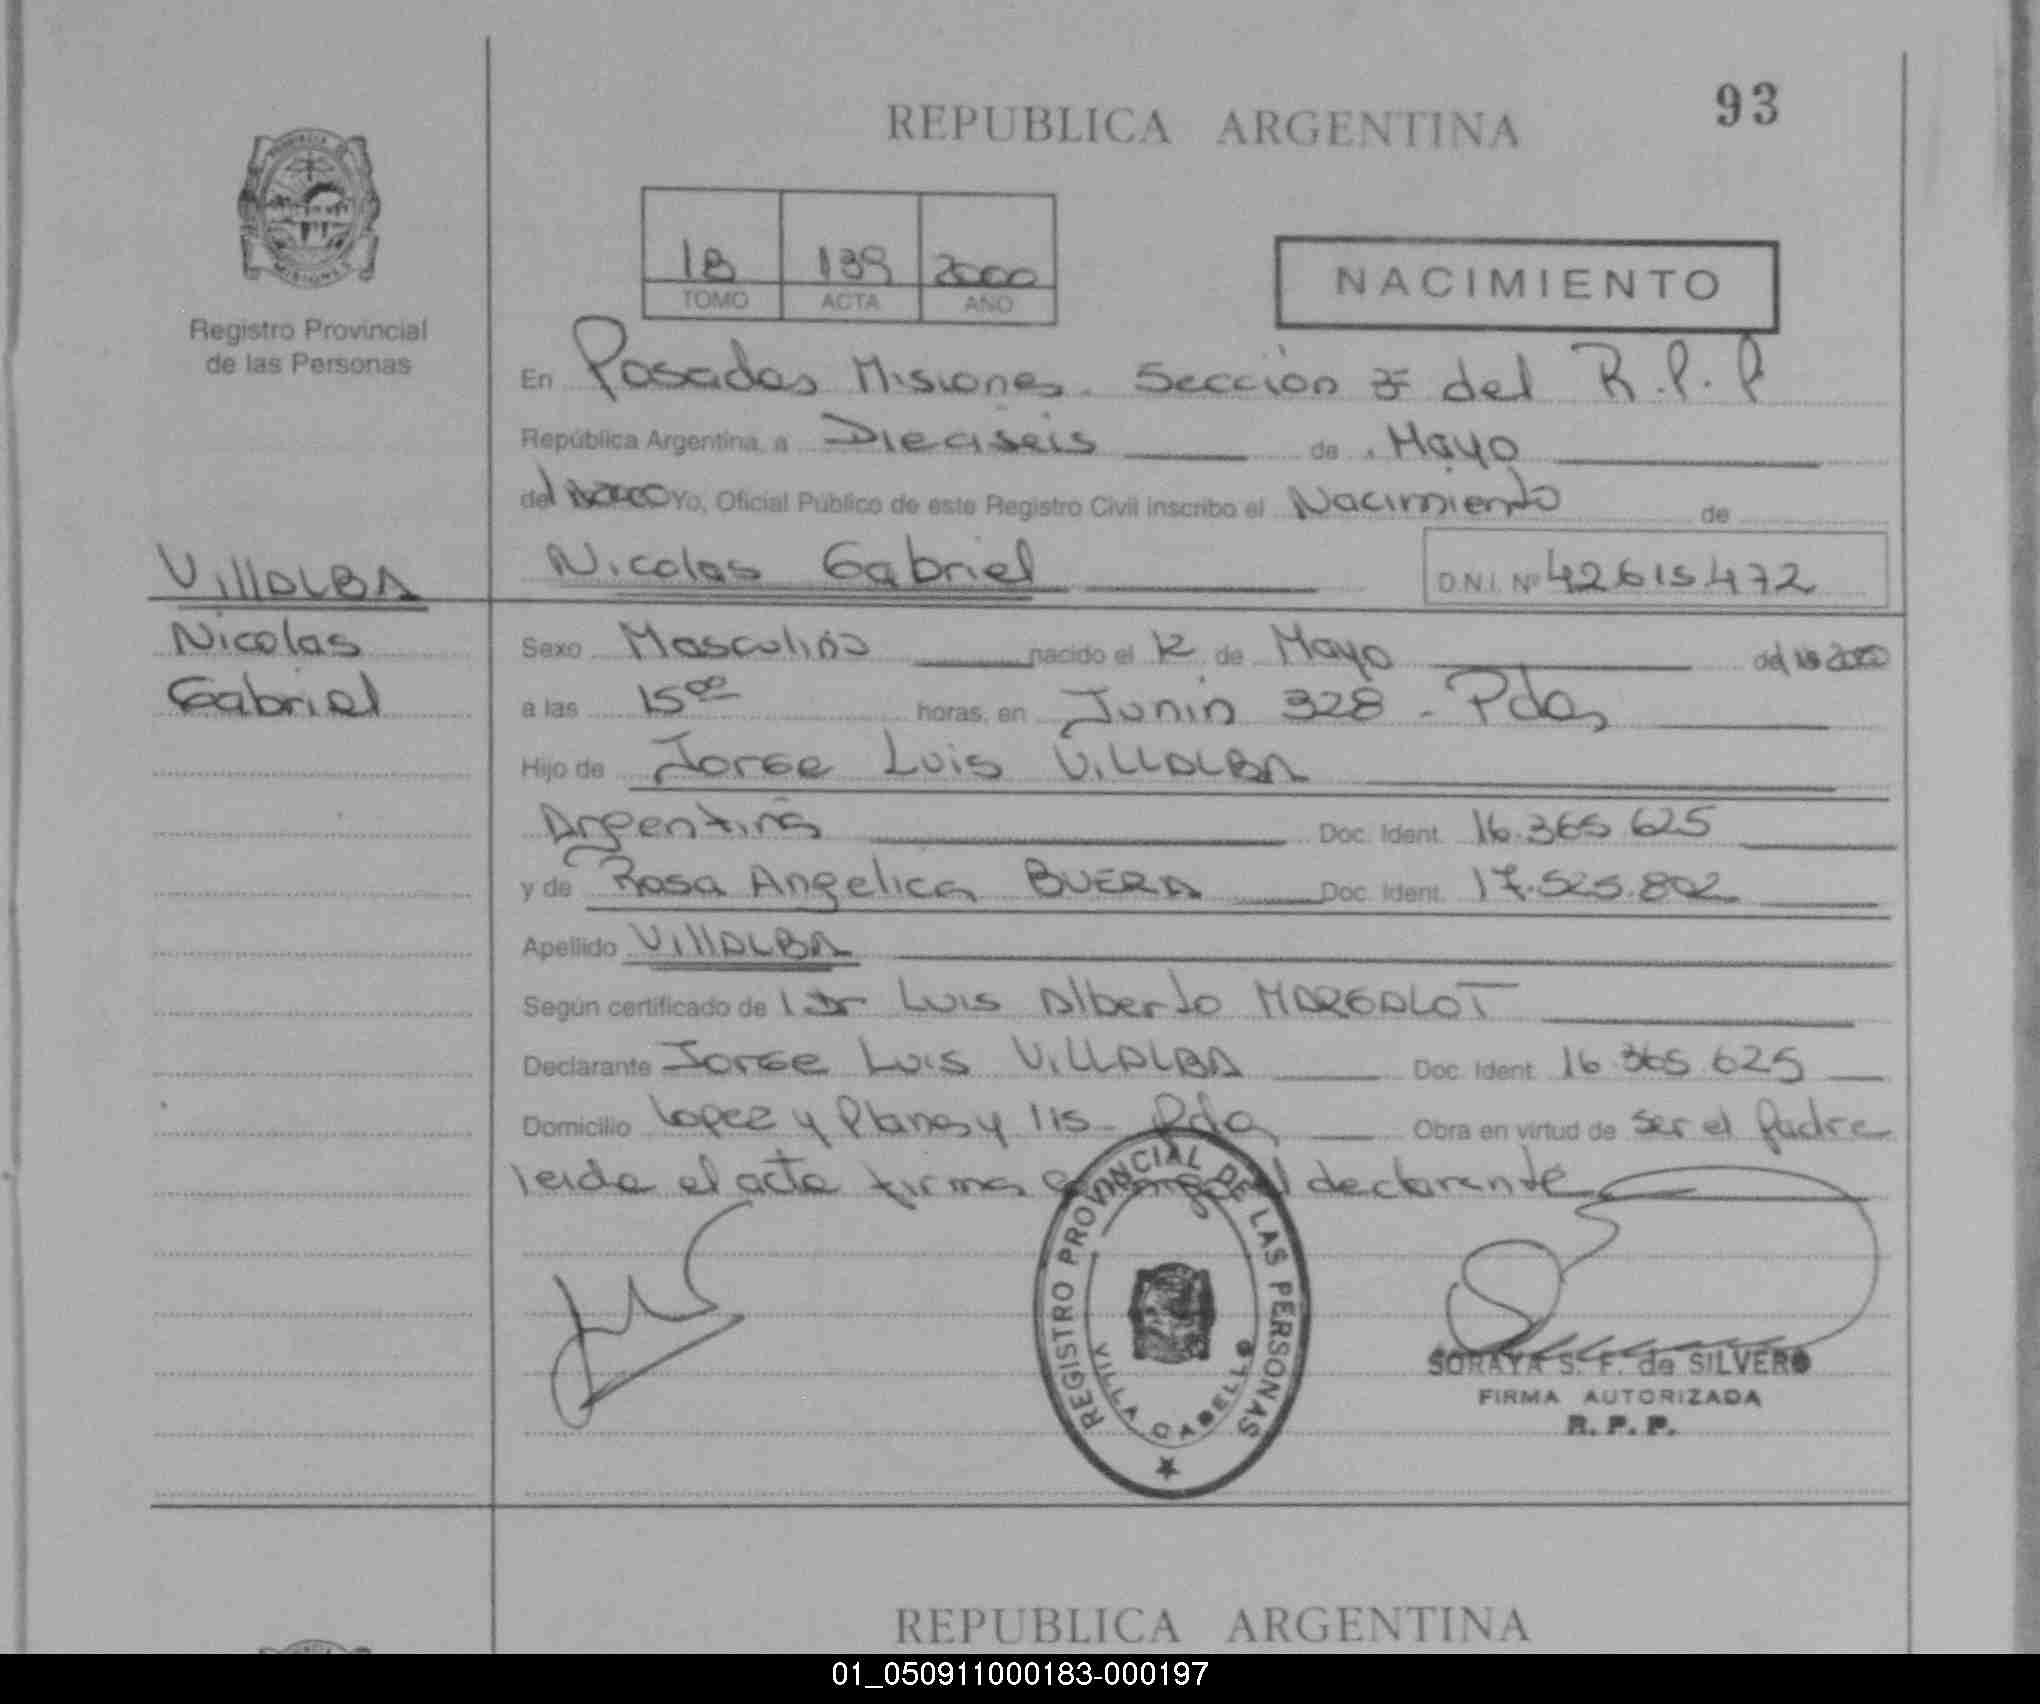 93
REPUBLICA ARGENTINA
PROVINCIA DE
MISIONES
Registro Provincial
de las Personas
1B 139 2000
TOMO ACTA AÑO
NACIMIENTO
En Posadas Misiones. Sección 3ª del R.P.P
República Argentina, a Dieciseis de Mayo
del 2000 Yo, Oficial Público de este Registro Civil inscribo el Nacimiento de
Nicolas Gabriel D.N.I. Nº 42615472
VillALBA
Nicolas
Gabriel
Sexo Masculino nacido el 12 de Mayo del 2000
a las 15 00 horas, en Junin 328 - Pdas
Hijo de Jorge Luis VILLALBA
Argentina Doc. Ident. 16.365.625
y de Rosa Angelica BUERA Doc. Ident. 17.525.802
Apellido VillALBA
Según certificado de l Dr Luis Alberto MARGALOT
Declarante Jorge Luis VILLALBA Doc. Ident. 16.365.625
Domicilio Lopez y Planes y 115 - Pdas Obra en virtud de ser el padre
leida el acta firma declarante
REGISTRO PROVINCIAL DE LAS PERSONAS
VILLA CABELLO
SORAYA S. F. de SILVERO
FIRMA AUTORIZADA
R. P. P.
REPUBLICA ARGENTINA
01_050911000183-000197